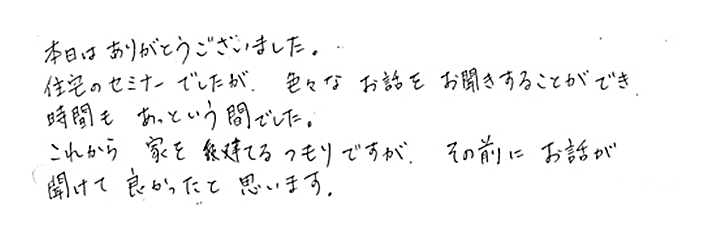 本日はありがとうございました。
住宅のセミナーでしたが、色々なお話をお聞きすることができ、
時間もあっという間でした。
これから家を建てるつもりですが、その前にお話が
聞けて良かったと思います。